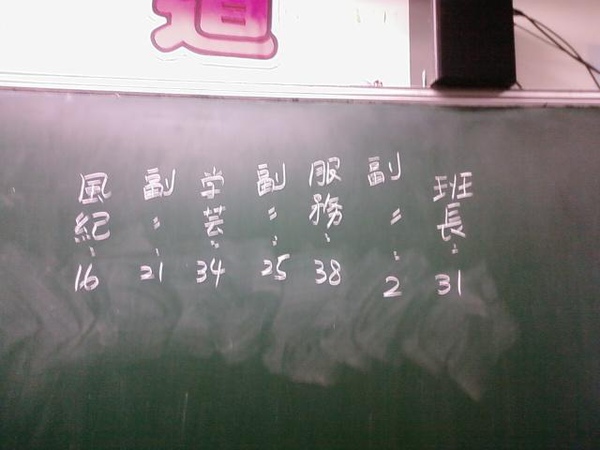 班長：31
副〃：2
服務：38
副〃：25
学芸：34
副〃：21
風紀：16